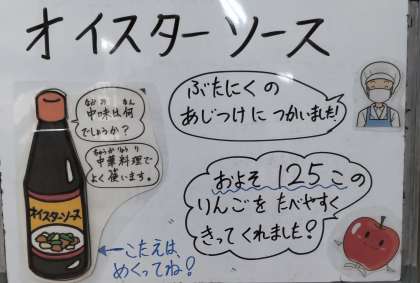 オイスターソース
中味は何
でしょうか?
中華料理で
よく使います。
オイスターソース
ぶたにくの
あじつけに つかいました!
およそ 125この
りんごを たべやすく
きってくれました!
←こたえは、
めくってね!